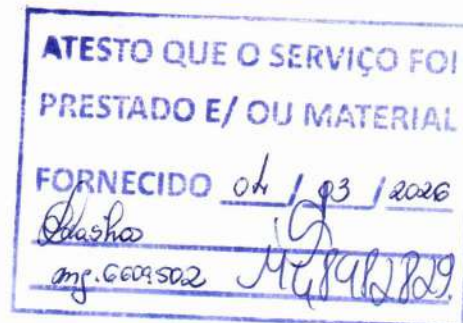 ATESTO QUE O SERVIÇO FOI
PRESTADO E/ OU MATERIAL
FORNECIDO 04 / 03 / 2026
mg. 6609502 MG 8982829.